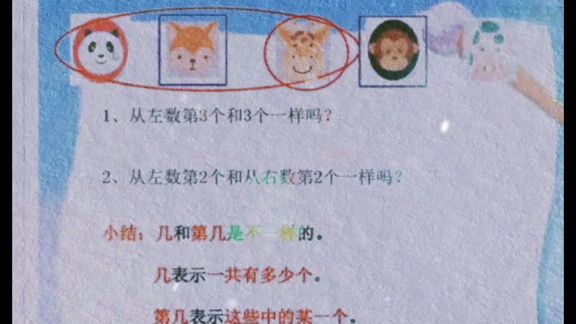 1、从左数第3个和3个一样吗？
2、从左数第2个和从右数第2个一样吗？
小结：几和第几是不一样的。
几表示一共有多少个。
第几表示这些中的某一个。